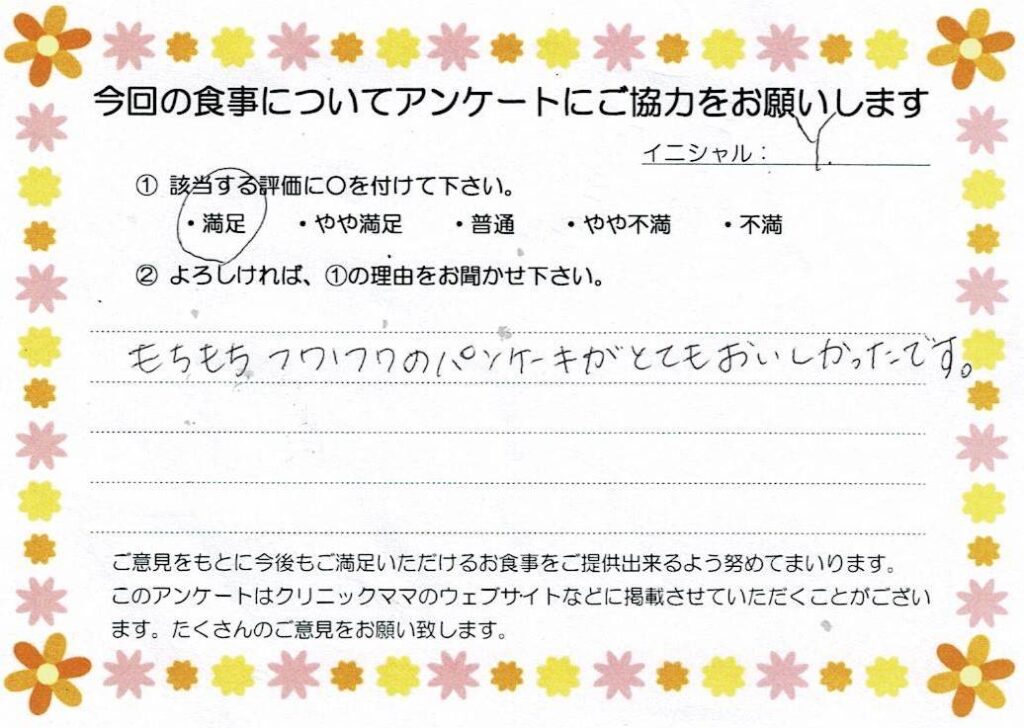 今回の食事についてアンケートにご協力をお願いします
イニシャル： Y.
① 該当する評価に〇を付けて下さい。
・満足 ・やや満足 ・普通 ・やや不満 ・不満
② よろしければ、①の理由をお聞かせ下さい。
もちもちフワフワのパンケーキがとてもおいしかったです。
ご意見をもとに今後もご満足いただけるお食事をご提供出来るよう努めてまいります。
このアンケートはクリニックママのウェブサイトなどに掲載させていただくことがござい
ます。たくさんのご意見をお願い致します。